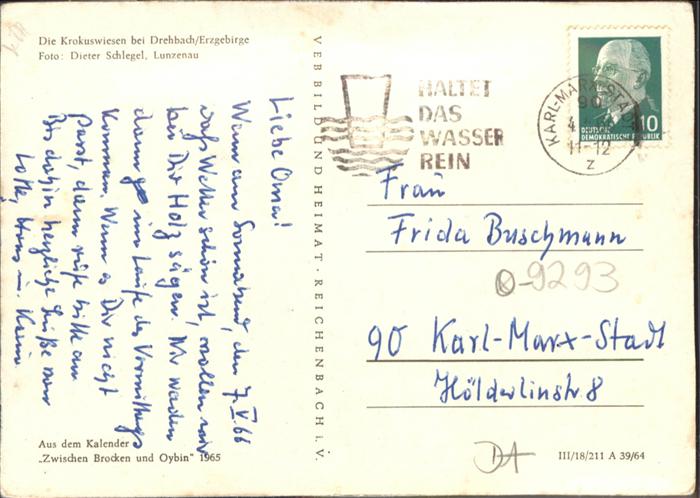 Die Krokuswiesen bei Drehbach/Erzgebirge
Foto: Dieter Schlegel, Lunzenau
Liebe Oma!
Wenn am Sonnabend, den 7.V.66
das Wetter schön ist, wollen wir
bei Dir Holz sägen. Wir werden
dann im Laufe des Vormittags
kommen. Wenn es Dir nicht
passt, dann rufe bitte an.
Bis dahin herzliche Grüße von
Lotte, Hans u. Karin
Aus dem Kalender
„Zwischen Brocken und Oybin“ 1965
VEB BILD UND HEIMAT · REICHENBACH i. V.
HALTET
DAS
WASSER
REIN
KARL-MARX-STADT
90
4
11-12
z
10
DEUTSCHE
DEMOKRATISCHE REPUBLIK
Frau
Frida Buschmann
9293
90 Karl-Marx-Stadt
Hölderlinstr. 8
III/18/211 A 39/64